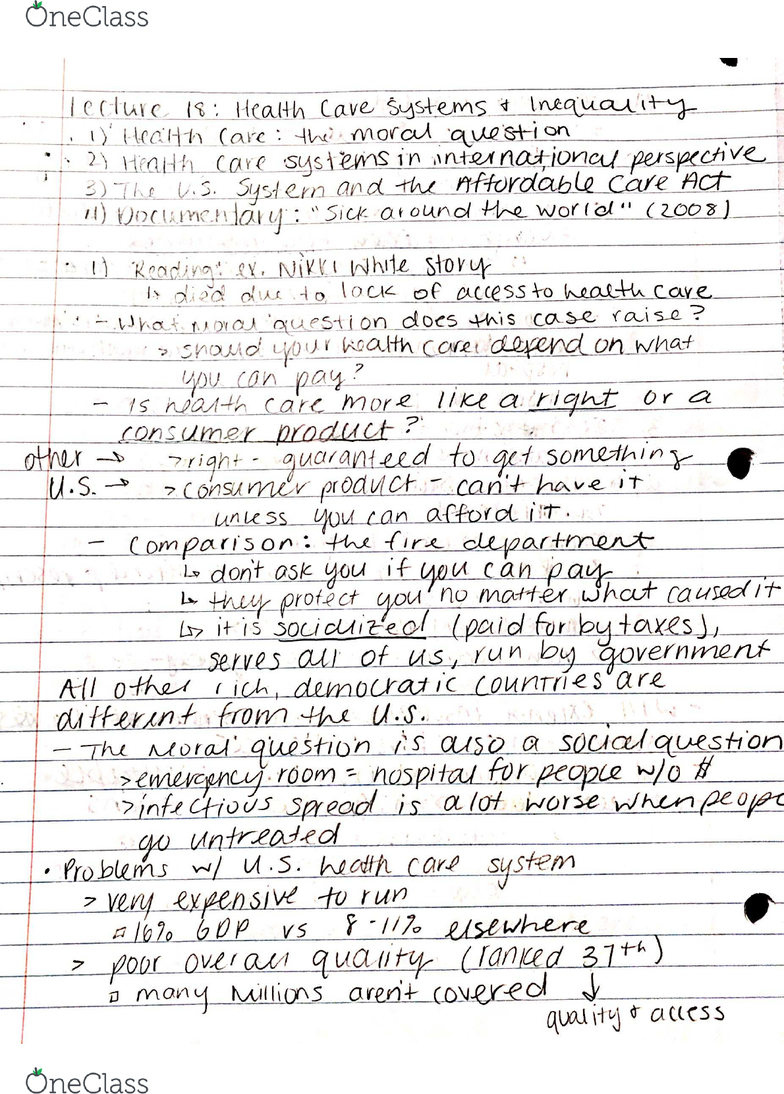 OneClass
Lecture 18: Health Care Systems & Inequality
1) Health Care: the moral question
2) Health Care systems in international perspective
3) The U.S. System and the Affordable Care Act
4) Documentary: "Sick around the world" (2008)
1) Reading: ex. Nikki White story
↳ died due to lack of access to health care
- What moral question does this case raise?
> should your health care depend on what
you can pay?
- Is health care more like a right or a
consumer product?
other → > right - guaranteed to get something
U.S. → > consumer product - can't have it
unless you can afford it.
- Comparison: the fire department
↳ don't ask you if you can pay
↳ they protect you no matter what caused it
↳ it is socialized (paid for by taxes),
serves all of us, run by government
All other rich, democratic countries are
different from the U.S.
- The Moral question is also a social question
> emergency room = hospital for people w/o $
> infectious spread is a lot worse when peop
go untreated
• Problems w/ U.S. health care system
> very expensive to run
▫ 16% GDP vs 8-11% elsewhere
> poor overall quality (ranked 37th)
▫ many Millions aren't covered ↓
quality & access
OneClass